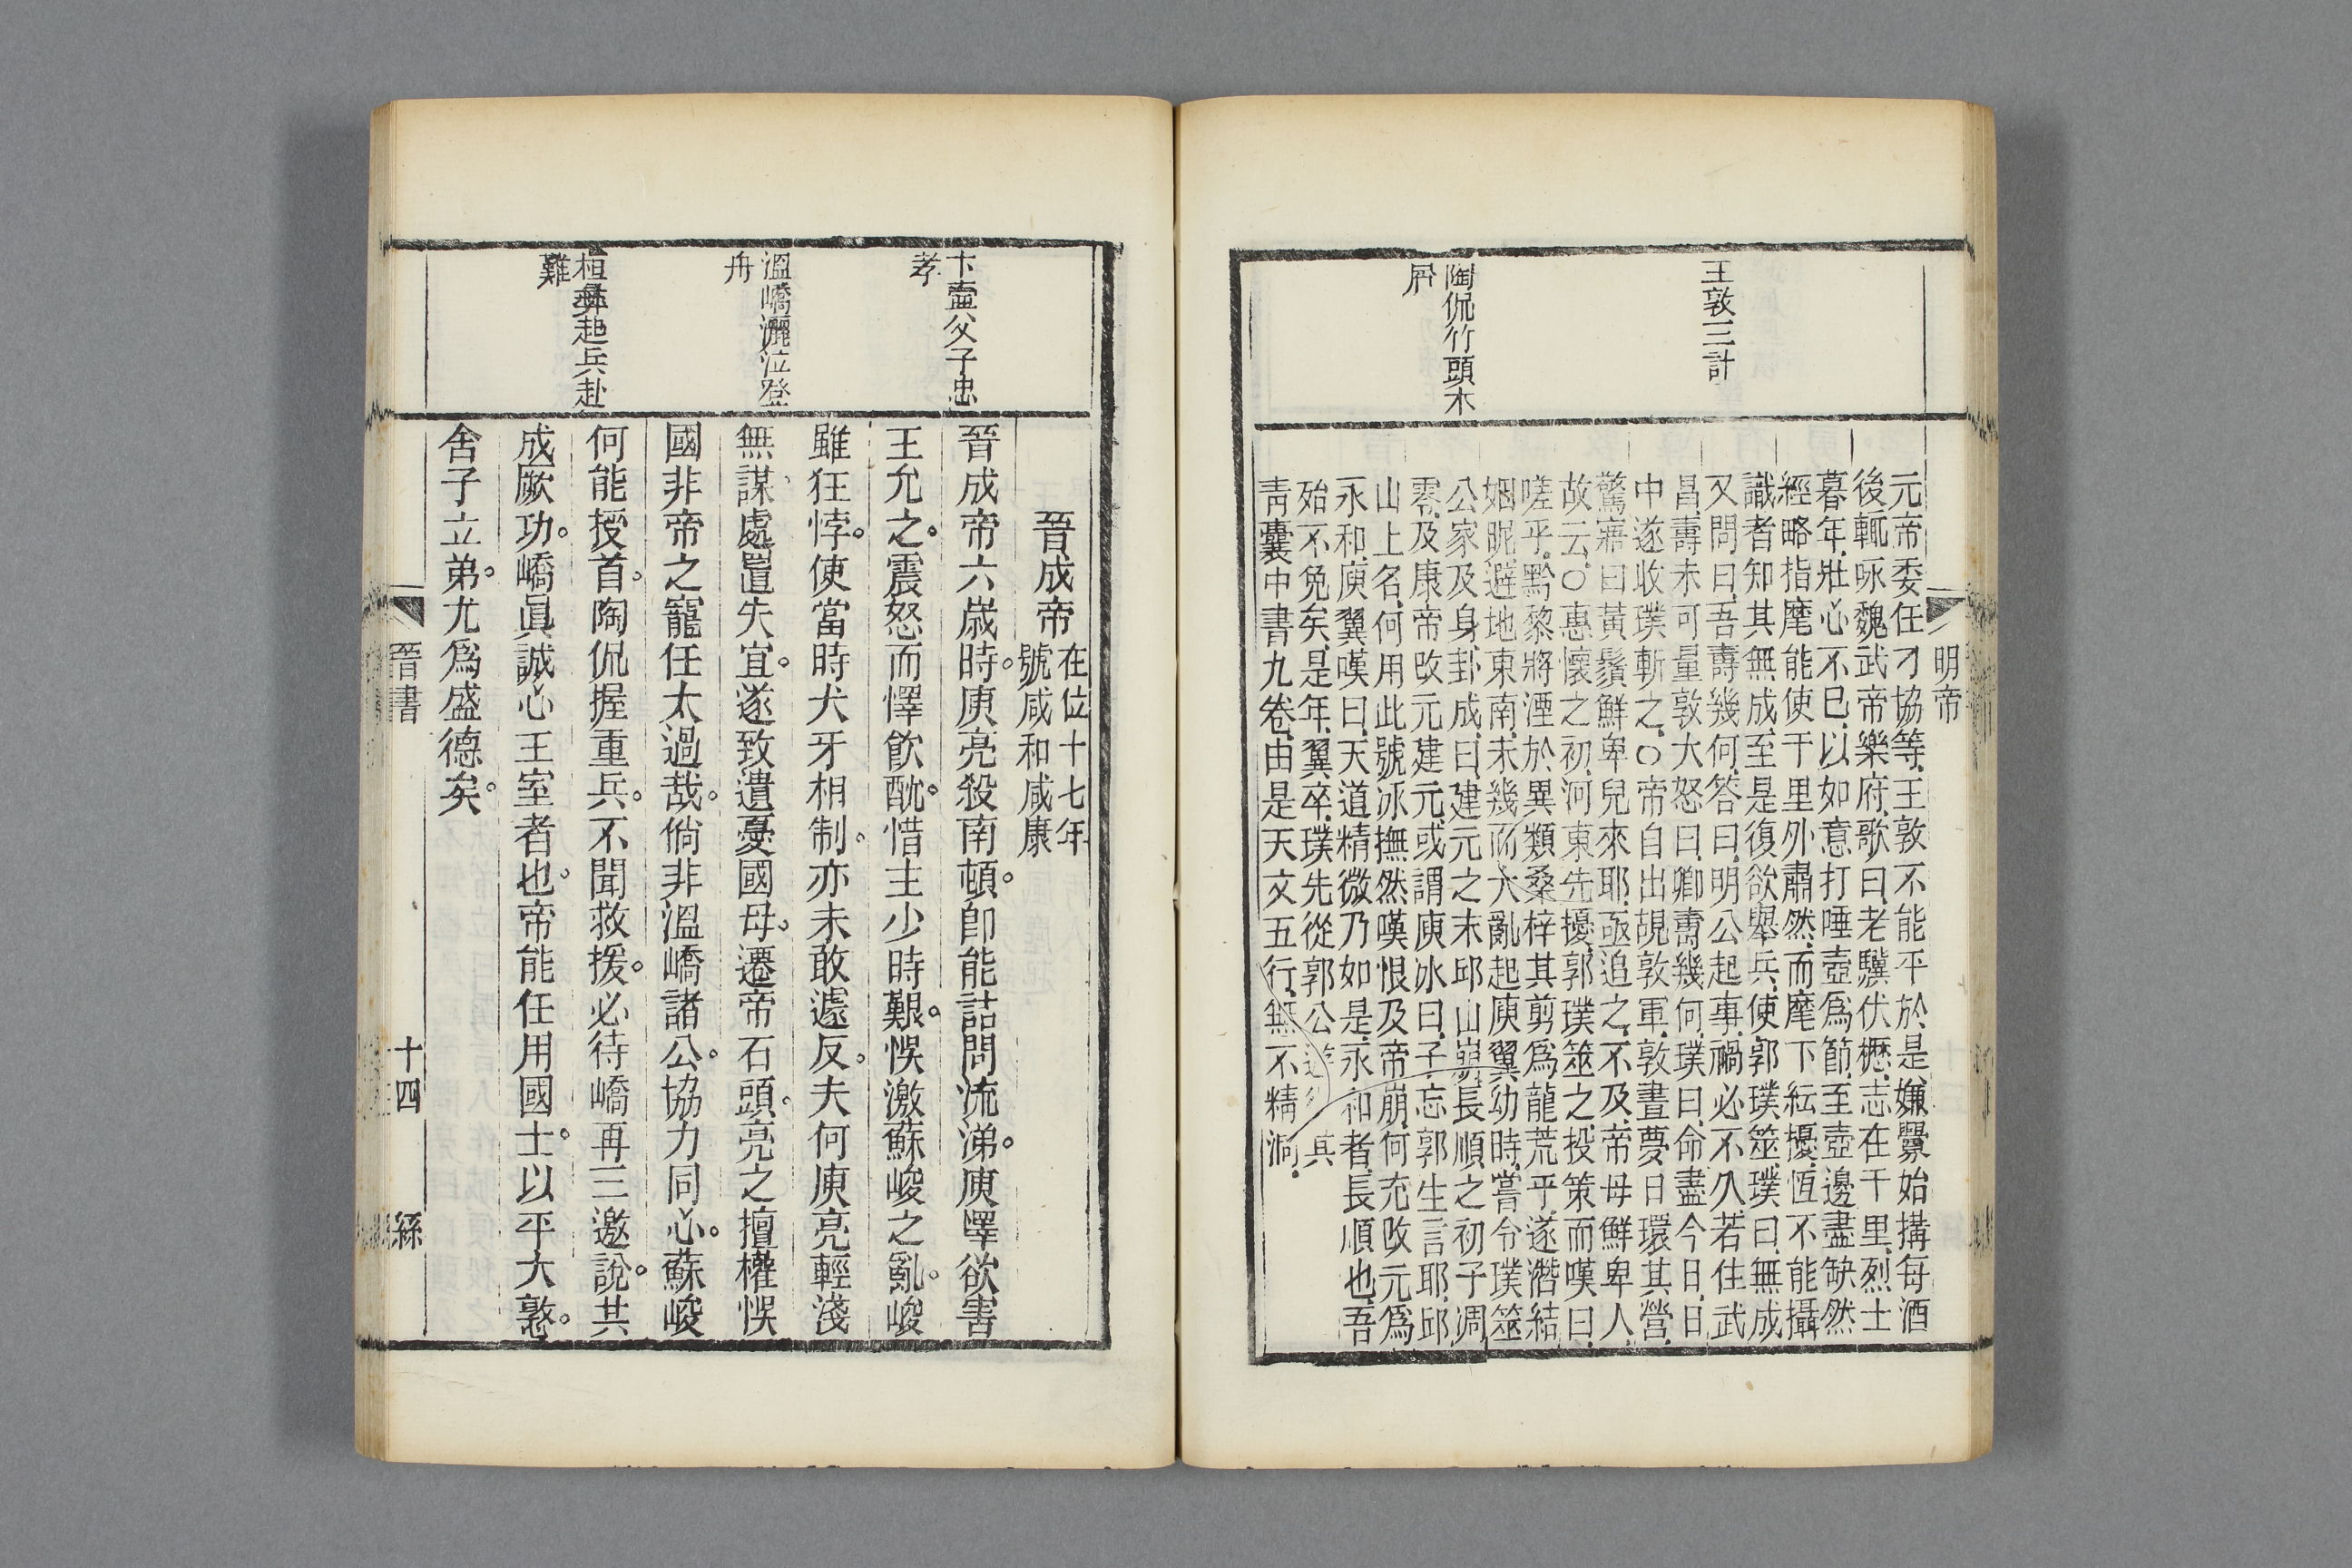 明帝
王敦三計
陶侃竹頭木
屑
元帝委任刁協等、王敦不能平、於是嫌釁始搆、每酒
後輒咏魏武帝樂府歌曰、老驥伏櫪、志在千里、烈士
暮年、壯心不已、以如意打唾壺為節、至壺邊盡缺、然
經略指麾、能使千里外肅然、而麾下紜擾、恆不能攝、
識者知其無成、至是復欲舉兵、使郭璞筮、璞曰、無成、
又問曰、吾壽幾何、答曰、明公起事、禍必不久、若住武
昌、壽未可量、敦大怒曰、卿壽幾何、璞曰、命盡今日、日
中、遂收璞斬之、○帝自出覘敦軍、敦晝夢日環其營、
驚寤曰、黃鬚鮮卑兒來耶、亟追之、不及、帝母鮮卑人、
故云、○惠懷之初、河東先擾、郭璞筮之、投策而嘆曰、
嗟乎、黔黎將湮於異類、桑梓其剪為龍荒乎、遂潛結
姻昵、避地東南、未幾而大亂起、庾翼幼時、嘗令璞筮
公家及身、卦成、曰、建元之末邱山崩、長順之初子凋
零、及康帝改元建元、或謂庾冰曰、子忘郭生言耶、邱
山上名、何用此號、冰撫然嘆恨、及帝崩、何充改元為
永和、庾翼嘆曰、天道精微乃如是、永和者、長順也、吾
殆不免矣、是年、翼卒、璞先從郭公遊、得其
青囊中書九卷、由是天文五行、無不精洞、
卞壼父子忠
孝
溫嶠灑泣登
舟
桓彝起兵赴
難
晉成帝
在位十七年
號咸和咸康
晉成帝六歲時。庾亮殺南頓。卽能詰問流涕。庾懌欲害
王允之。震怒而懌飲酖。惜主少時艱。悞激蘇峻之亂。峻
雖狂悖。使當時犬牙相制。亦未敢遽反。夫何庾亮輕淺
無謀、處置失宜。遂致遺憂國母。遷帝石頭。亮之擅權悞
國非帝之寵任太過哉。倘非溫嶠諸公。協力同心。蘇峻
何能授首。陶侃握重兵。不聞救援。必待嶠再三邀說。共
成厥功。嶠眞誠心王室者也。帝能任用國士。以平大憝。
舍子立弟。尤爲盛德矣。
晉書
十四